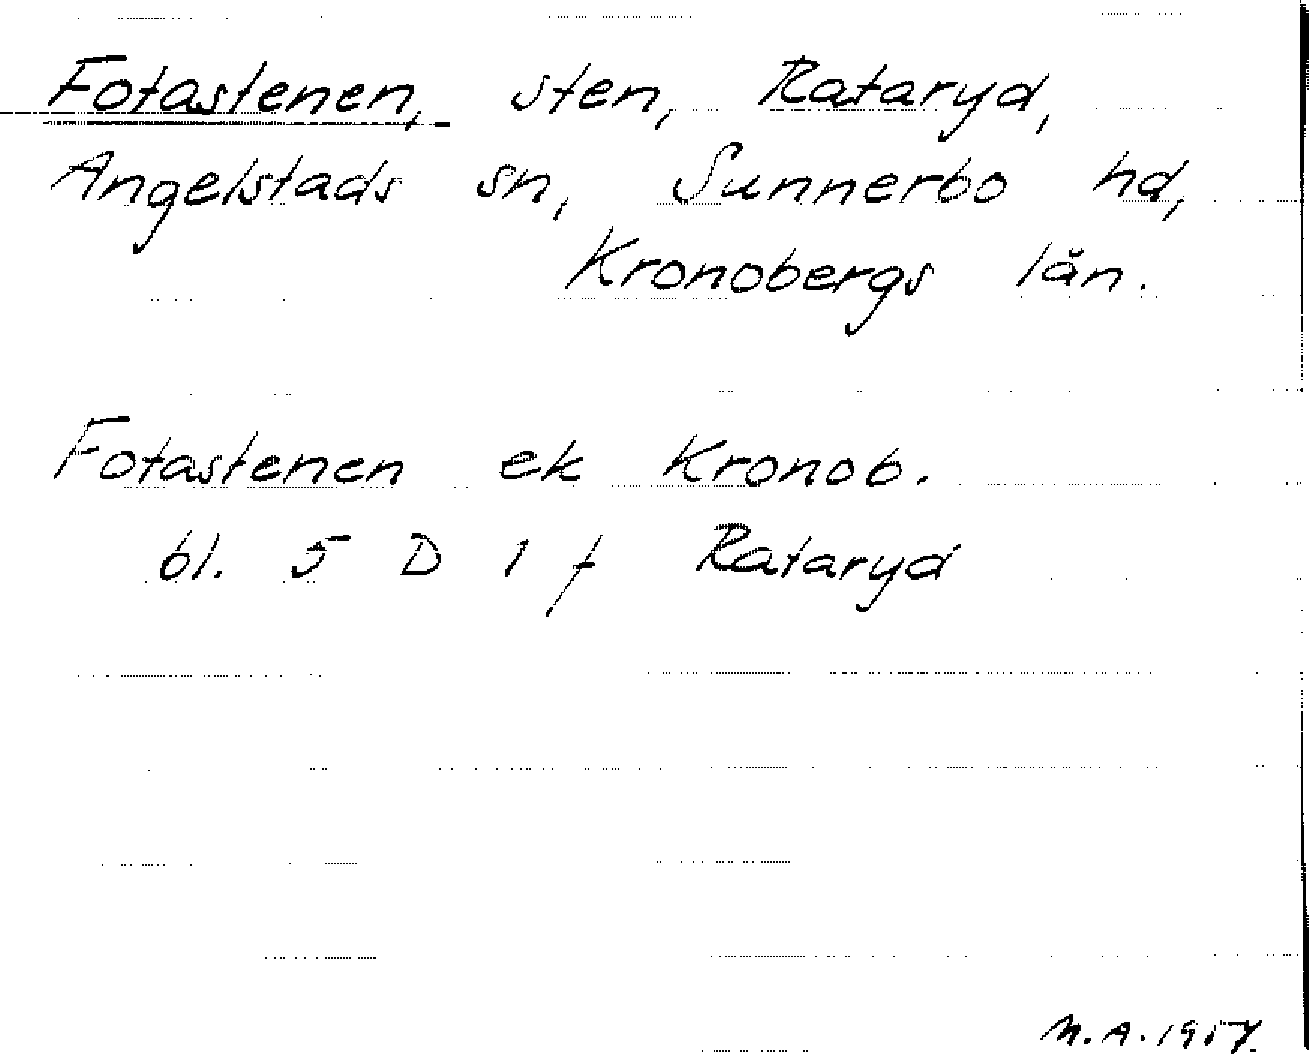 Fotastenen, sten, Rataryd,
Angelstads sn, Sunnerbo hd,
Kronobergs län.
Fotastenen ek Kronob.
bl. 5 D 1 f Rataryd
M.A. 1957.